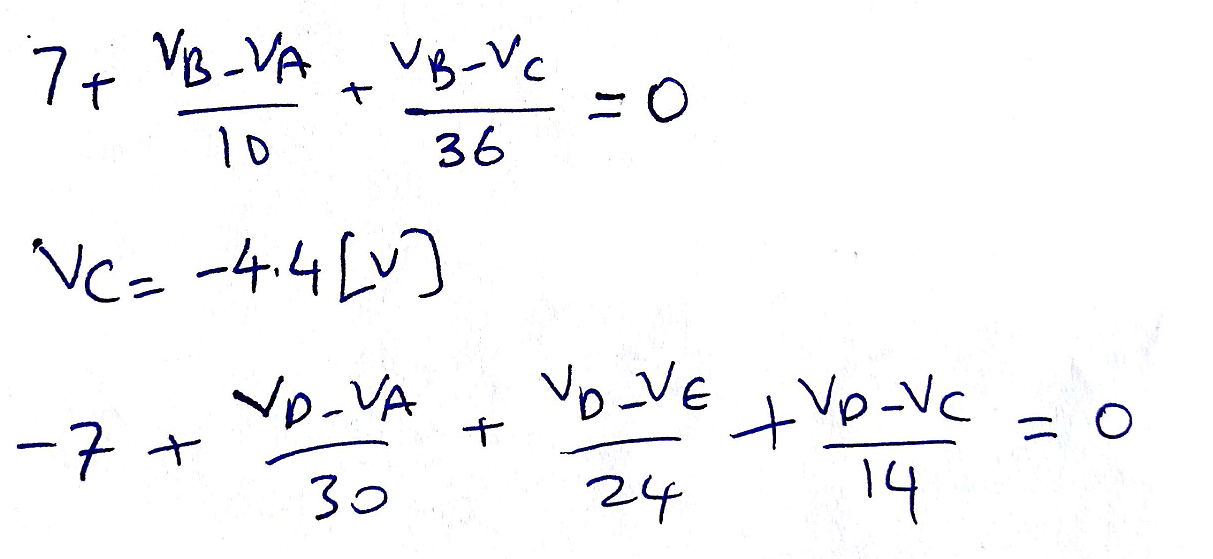 7 + (VB-VA)/10 + (VB-VC)/36 = 0
VC = -4.4 [V]
-7 + (VD-VA)/30 + (VD-VE)/24 + (VD-VC)/14 = 0